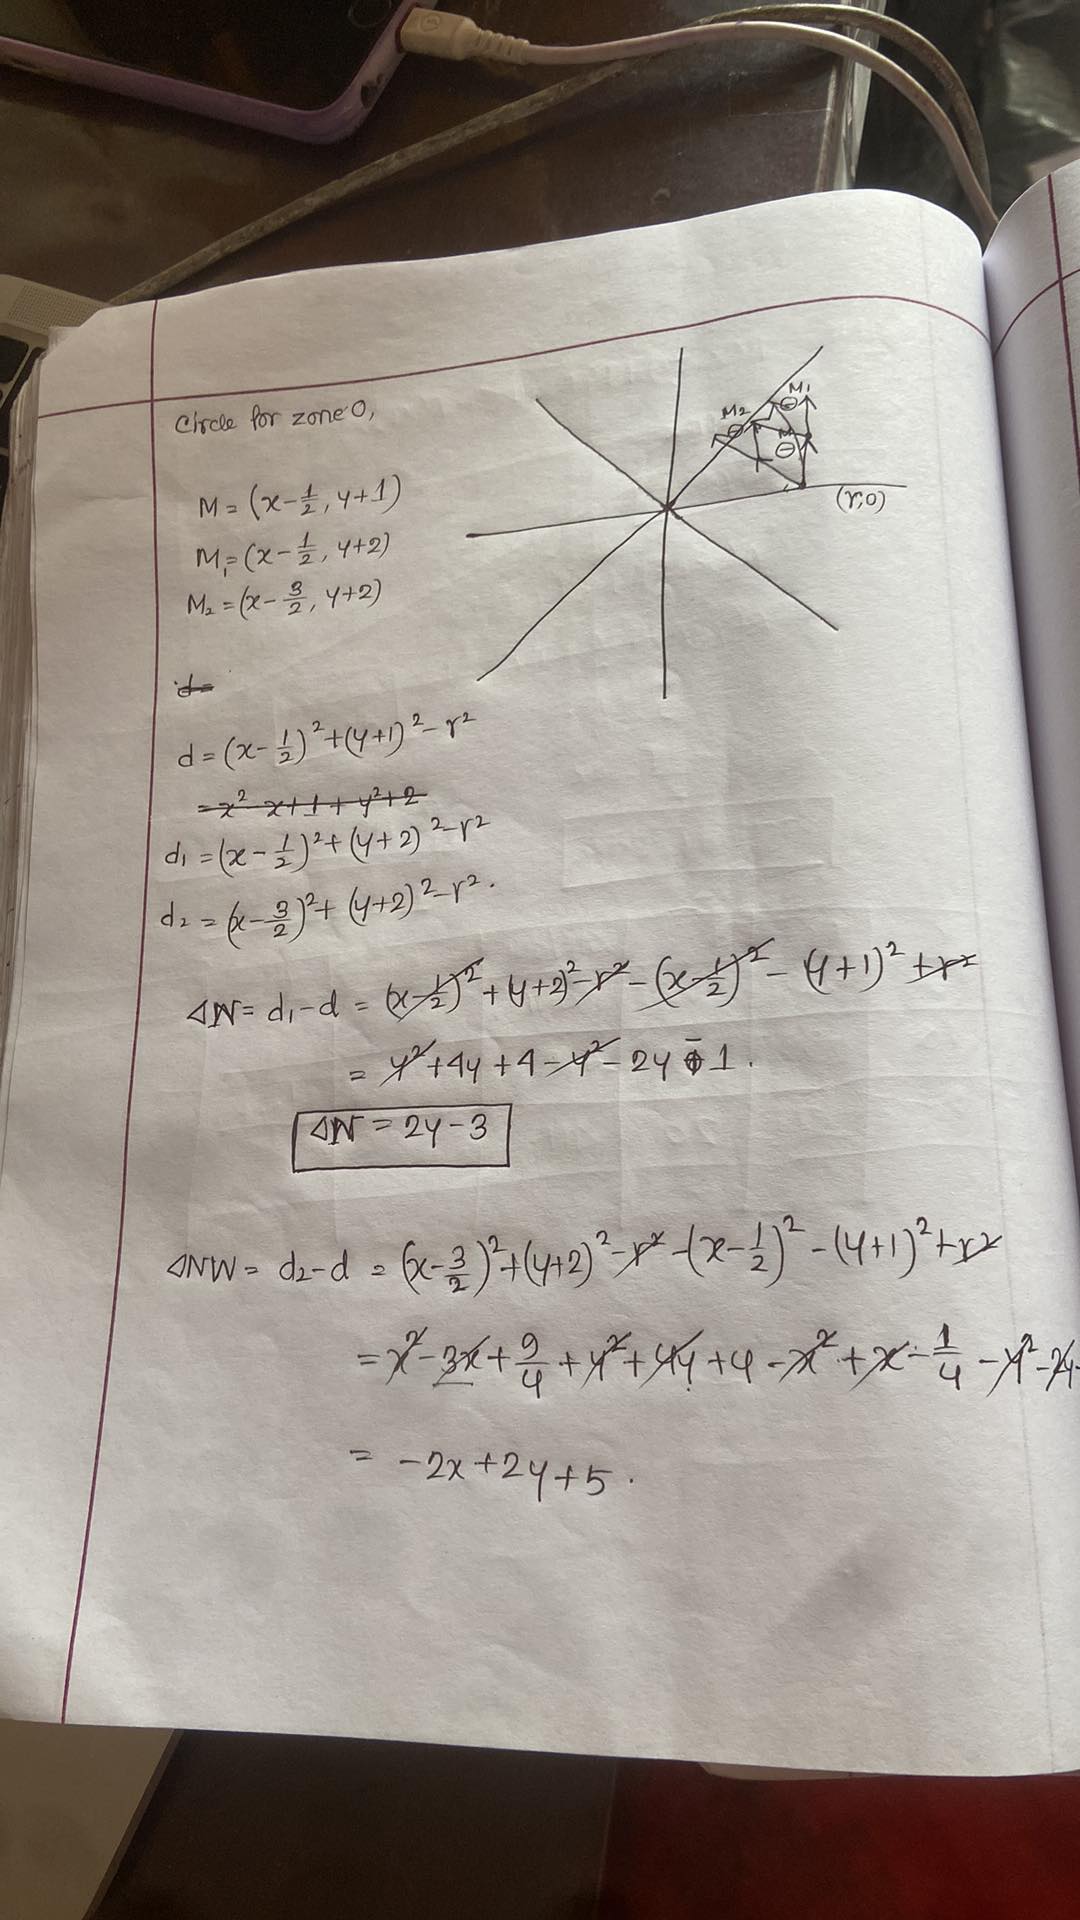 Circle for zone 0,
M₁
M₂
M
(r,0)
M = (x - 1/2, y+1)
M₁ = (x - 1/2, y+2)
M₂ = (x - 3/2, y+2)
d =
d = (x - 1/2)² + (y+1)² - r²
= x² - x + 1 + y² + 2
d₁ = (x - 1/2)² + (y+2)² - r²
d₂ = (x - 3/2)² + (y+2)² - r².
ΔN = d₁ - d = (x - 1/2)² + (y+2)² - r² - (x - 1/2)² - (y+1)² + r²
= y² + 4y + 4 - y² - 2y - 1.
ΔN = 2y - 3
ΔNW = d₂ - d = (x - 3/2)² + (y+2)² - r² - (x - 1/2)² - (y+1)² + r²
= x² - 3x + 9/4 + y² + 4y + 4 - x² + x - 1/4 - y² - 2y -
= -2x + 2y + 5.